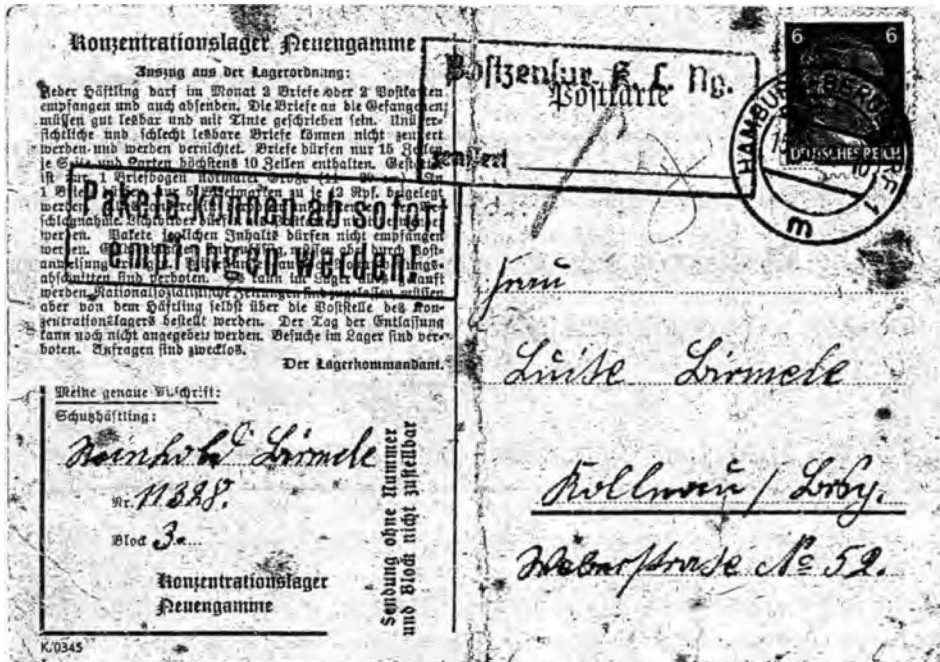 Konzentrationslager Neuengamme
Auszug aus der Lagerordnung:
Jeder Häftling darf im Monat 2 Briefe oder 2 Postkarten
empfangen und auch absenden. Die Briefe an die Gefangenen
müssen gut lesbar und mit Tinte geschrieben sein. Unüber-
sichtliche und schlecht lesbare Briefe können nicht zensiert
werden und werden vernichtet. Briefe dürfen nur 15 Zeilen
je Seite und Karten höchstens 10 Zeilen enthalten. Gestattet
ist nur 1 Briefbogen normaler Größe
1 Brief dürfen nur 5 Briefmarken zu je 12 Rpf. beigelegt
werden.
schlagnahme. Lichtbilder dürfen
werden. Pakete jeglichen Inhalts dürfen nicht empfangen
werden. durch Post-
anweisung
abschnitten sind verboten. Es kann im Lager alles gekauft
werden. Nationalsozialistische Zeitungen sind zugelassen, müssen
aber von dem Häftling selbst über die Poststelle des Kon-
zentrationslagers bestellt werden. Der Tag der Entlassung
kann noch nicht angegeben werden. Besuche im Lager sind ver-
boten. Anfragen sind zwecklos.
Der Lagerkommandant.
Pakete können ab sofort
empfangen werden!
Meine genaue Anschrift:
Schutzhäftling:
Reinhold Birmele
Nr. 11328.
Block 3.
Konzentrationslager
Neuengamme
Sendung ohne Nummer
und Block nicht zustellbar
K/0345
Postzensur K. L. Ng.
Postkarte
zensiert
6 6
DEUTSCHES REICH
HAMBURG-BERGEDORF 1
m
Frau
Luise Birmele
Kollnau / Brsg.
Weberstrase No 52.